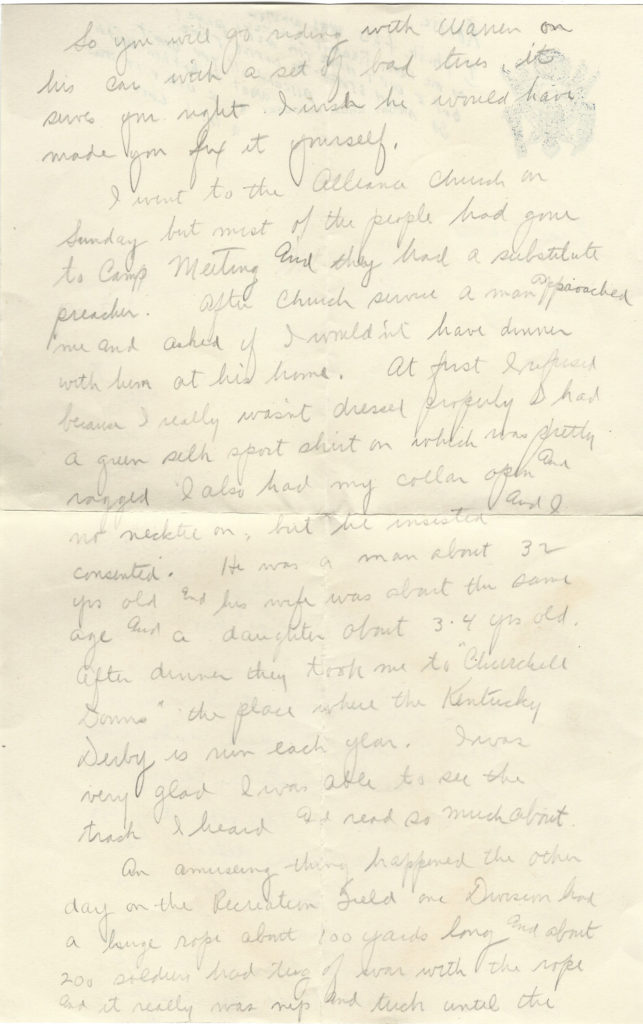 So you will go riding with Warren on
his car with a set of bad tires, it
serves you right I wish he would have
made you fix it yourself.
I went to the Alliance Church on
Sunday but most of the people had gone
to Camp Meeting and they had a substitute
preacher. After Church service a man approached
me and asked if I wouldn't have dinner
with him at his home. At first I refused
because I really wasn't dressed properly I had
a green silk sport shirt on which was pretty
ragged I also had my collar open and
no necktie on, but he insisted and I
consented. He was a man about 32
yrs old and his wife was about the same
age and a daughter about 3-4 yrs old.
After dinner they took me to "Churchill
Downs" the place where the Kentucky
Derby is run each year. I was
very glad I was able to see the
track I heard and read so much about.
An amuseing thing happened the other
day on the Recreation Field one Division had
a huge rope about 100 yards long and about
200 soldiers had tug of war with the rope
and it really was nip and tuck until the